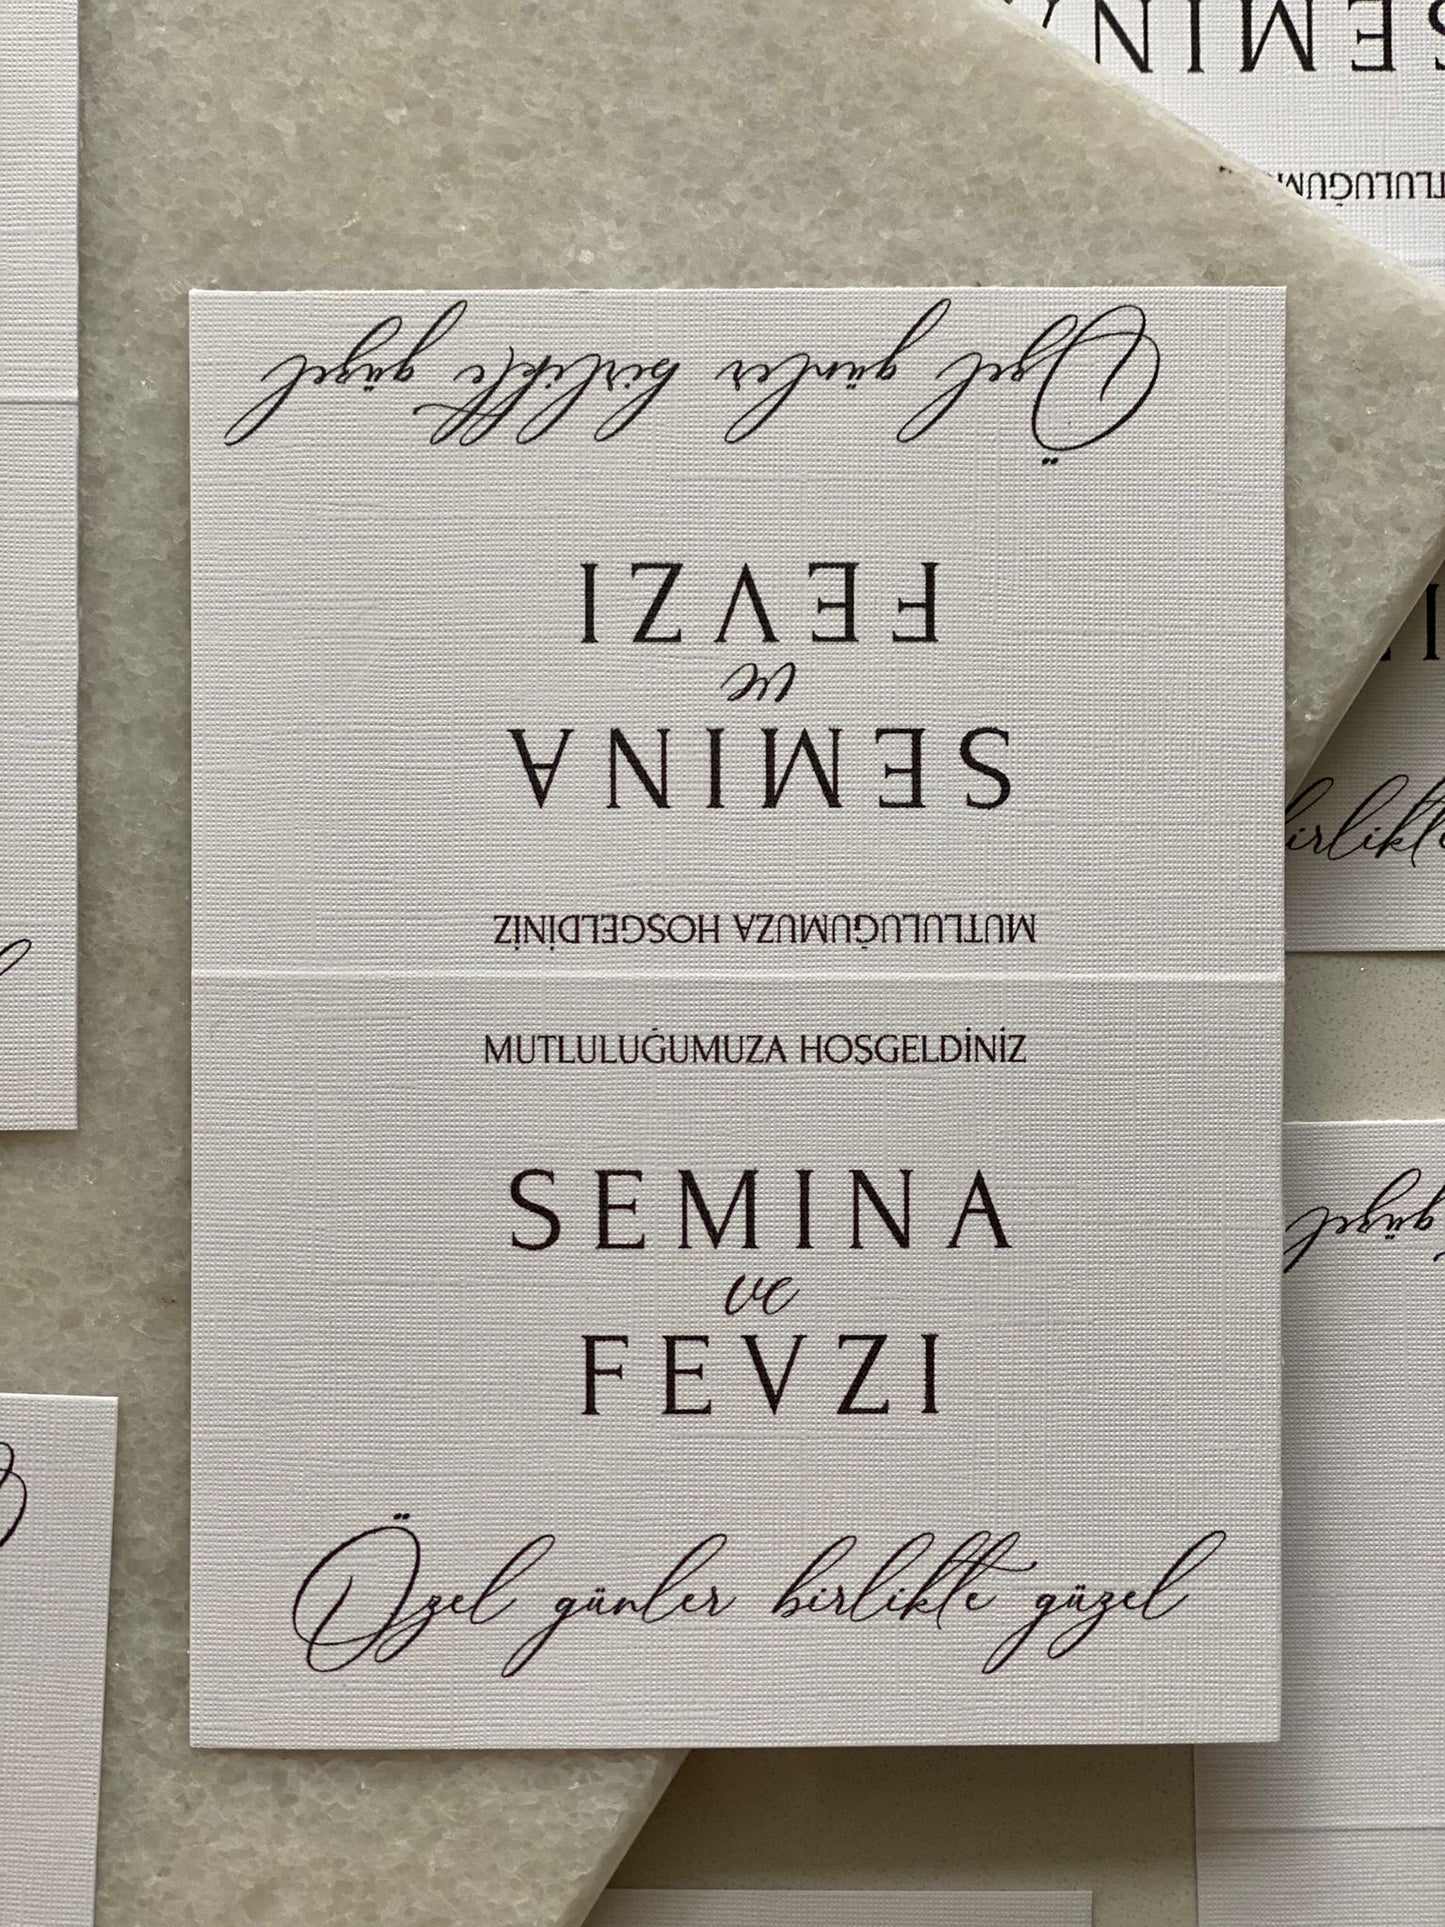 SEMINA
Özel günler birlikte güzel
FEVZI
ve
SEMINA
MUTLULUĞUMUZA HOŞGELDİNİZ
MUTLULUĞUMUZA HOŞGELDİNİZ
SEMINA
ve
FEVZI
Özel günler birlikte güzel
birlikte
güzel